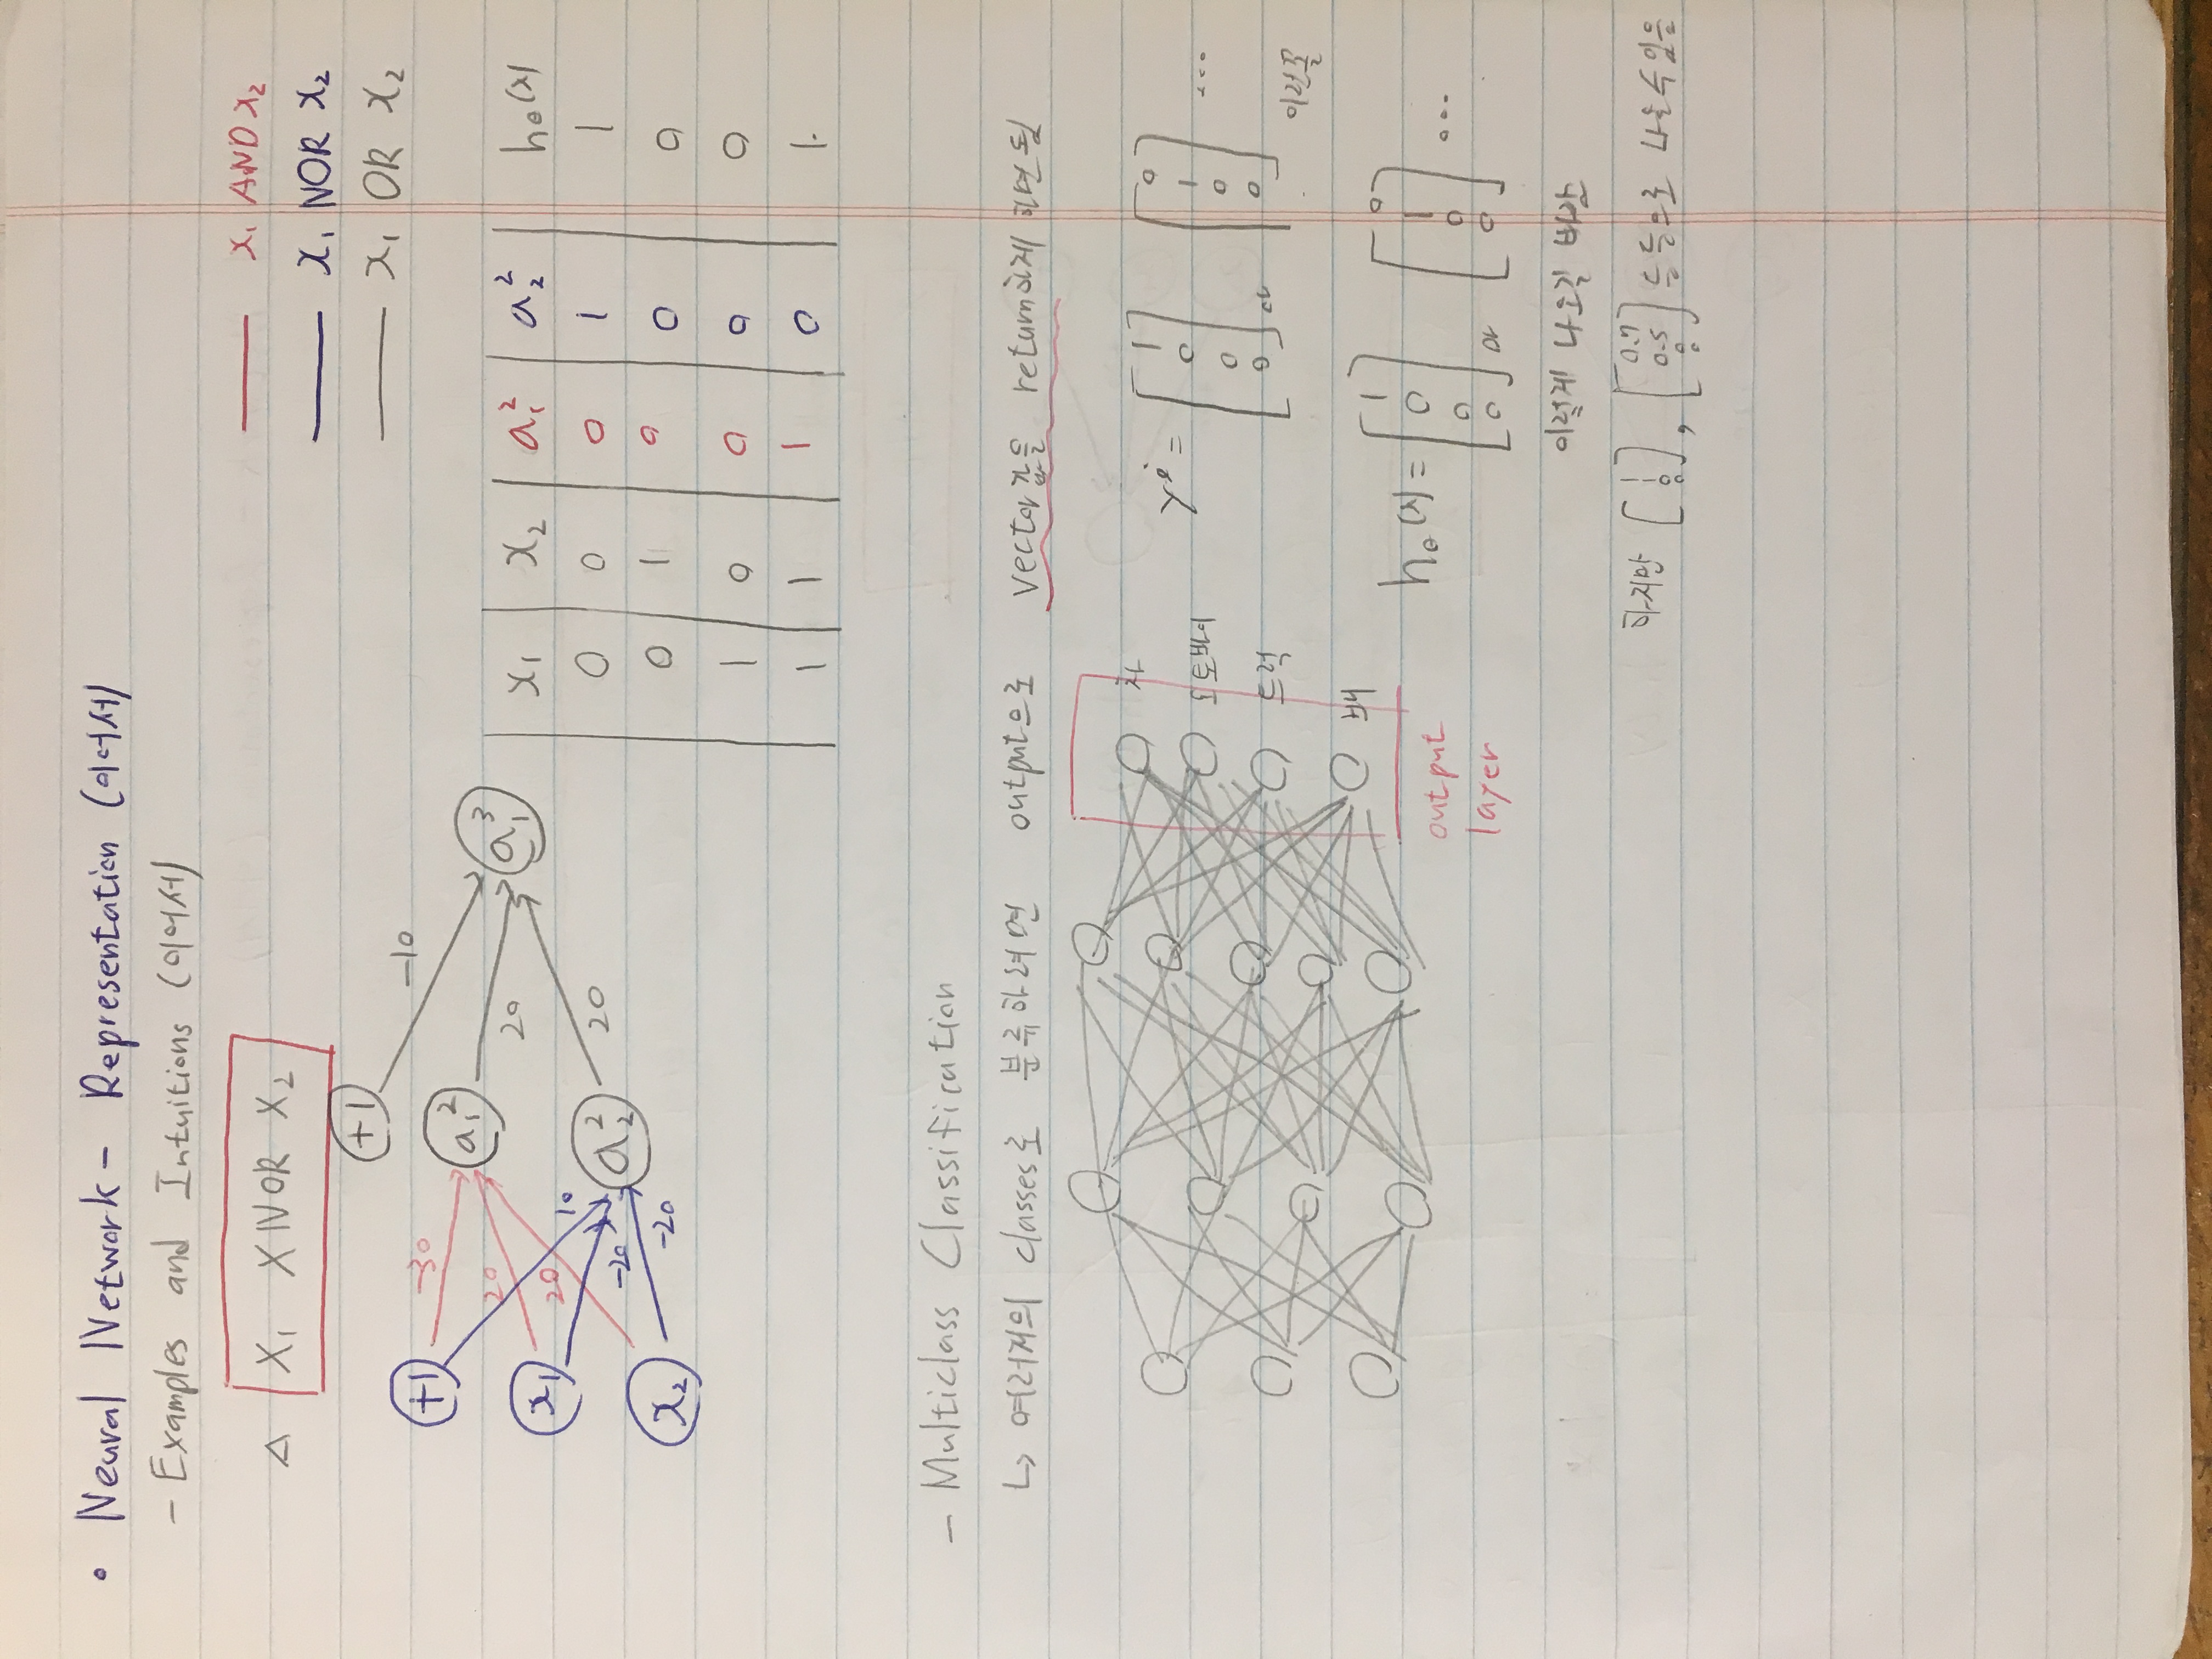 • Neural Network - Representation (이어서)
- Examples and Intuitions (이어서)
△ X₁ XNOR X₂
x₁ AND x₂
x₁ NOR x₂
x₁ OR x₂
+1 -10
+1 -30 a₁² a₁³
20 20
x₁ 20 10
-20 a₂² 20
x₂ -20
x₁ x₂ a₁² a₂² hθ(x)
0 0 0 1 1
0 1 0 0 0
1 0 0 0 0
1 1 1 0 1
- Multiclass Classification
↳ 여러개의 classes로 분류하려면 output으로 vector값을 return하게 하면 됨
차
오토바이
트럭
배
output
layer
yⁱ = [1 0 0 0] or [0 1 0 0] ...
이런꼴
hθ(x) = [1 0 0 0] or [0 1 0 0] ...
이렇게 나오길 바람
하지만 [1 1 0 0], [0.7 0.5 0 0] 등등으로 나올수있음